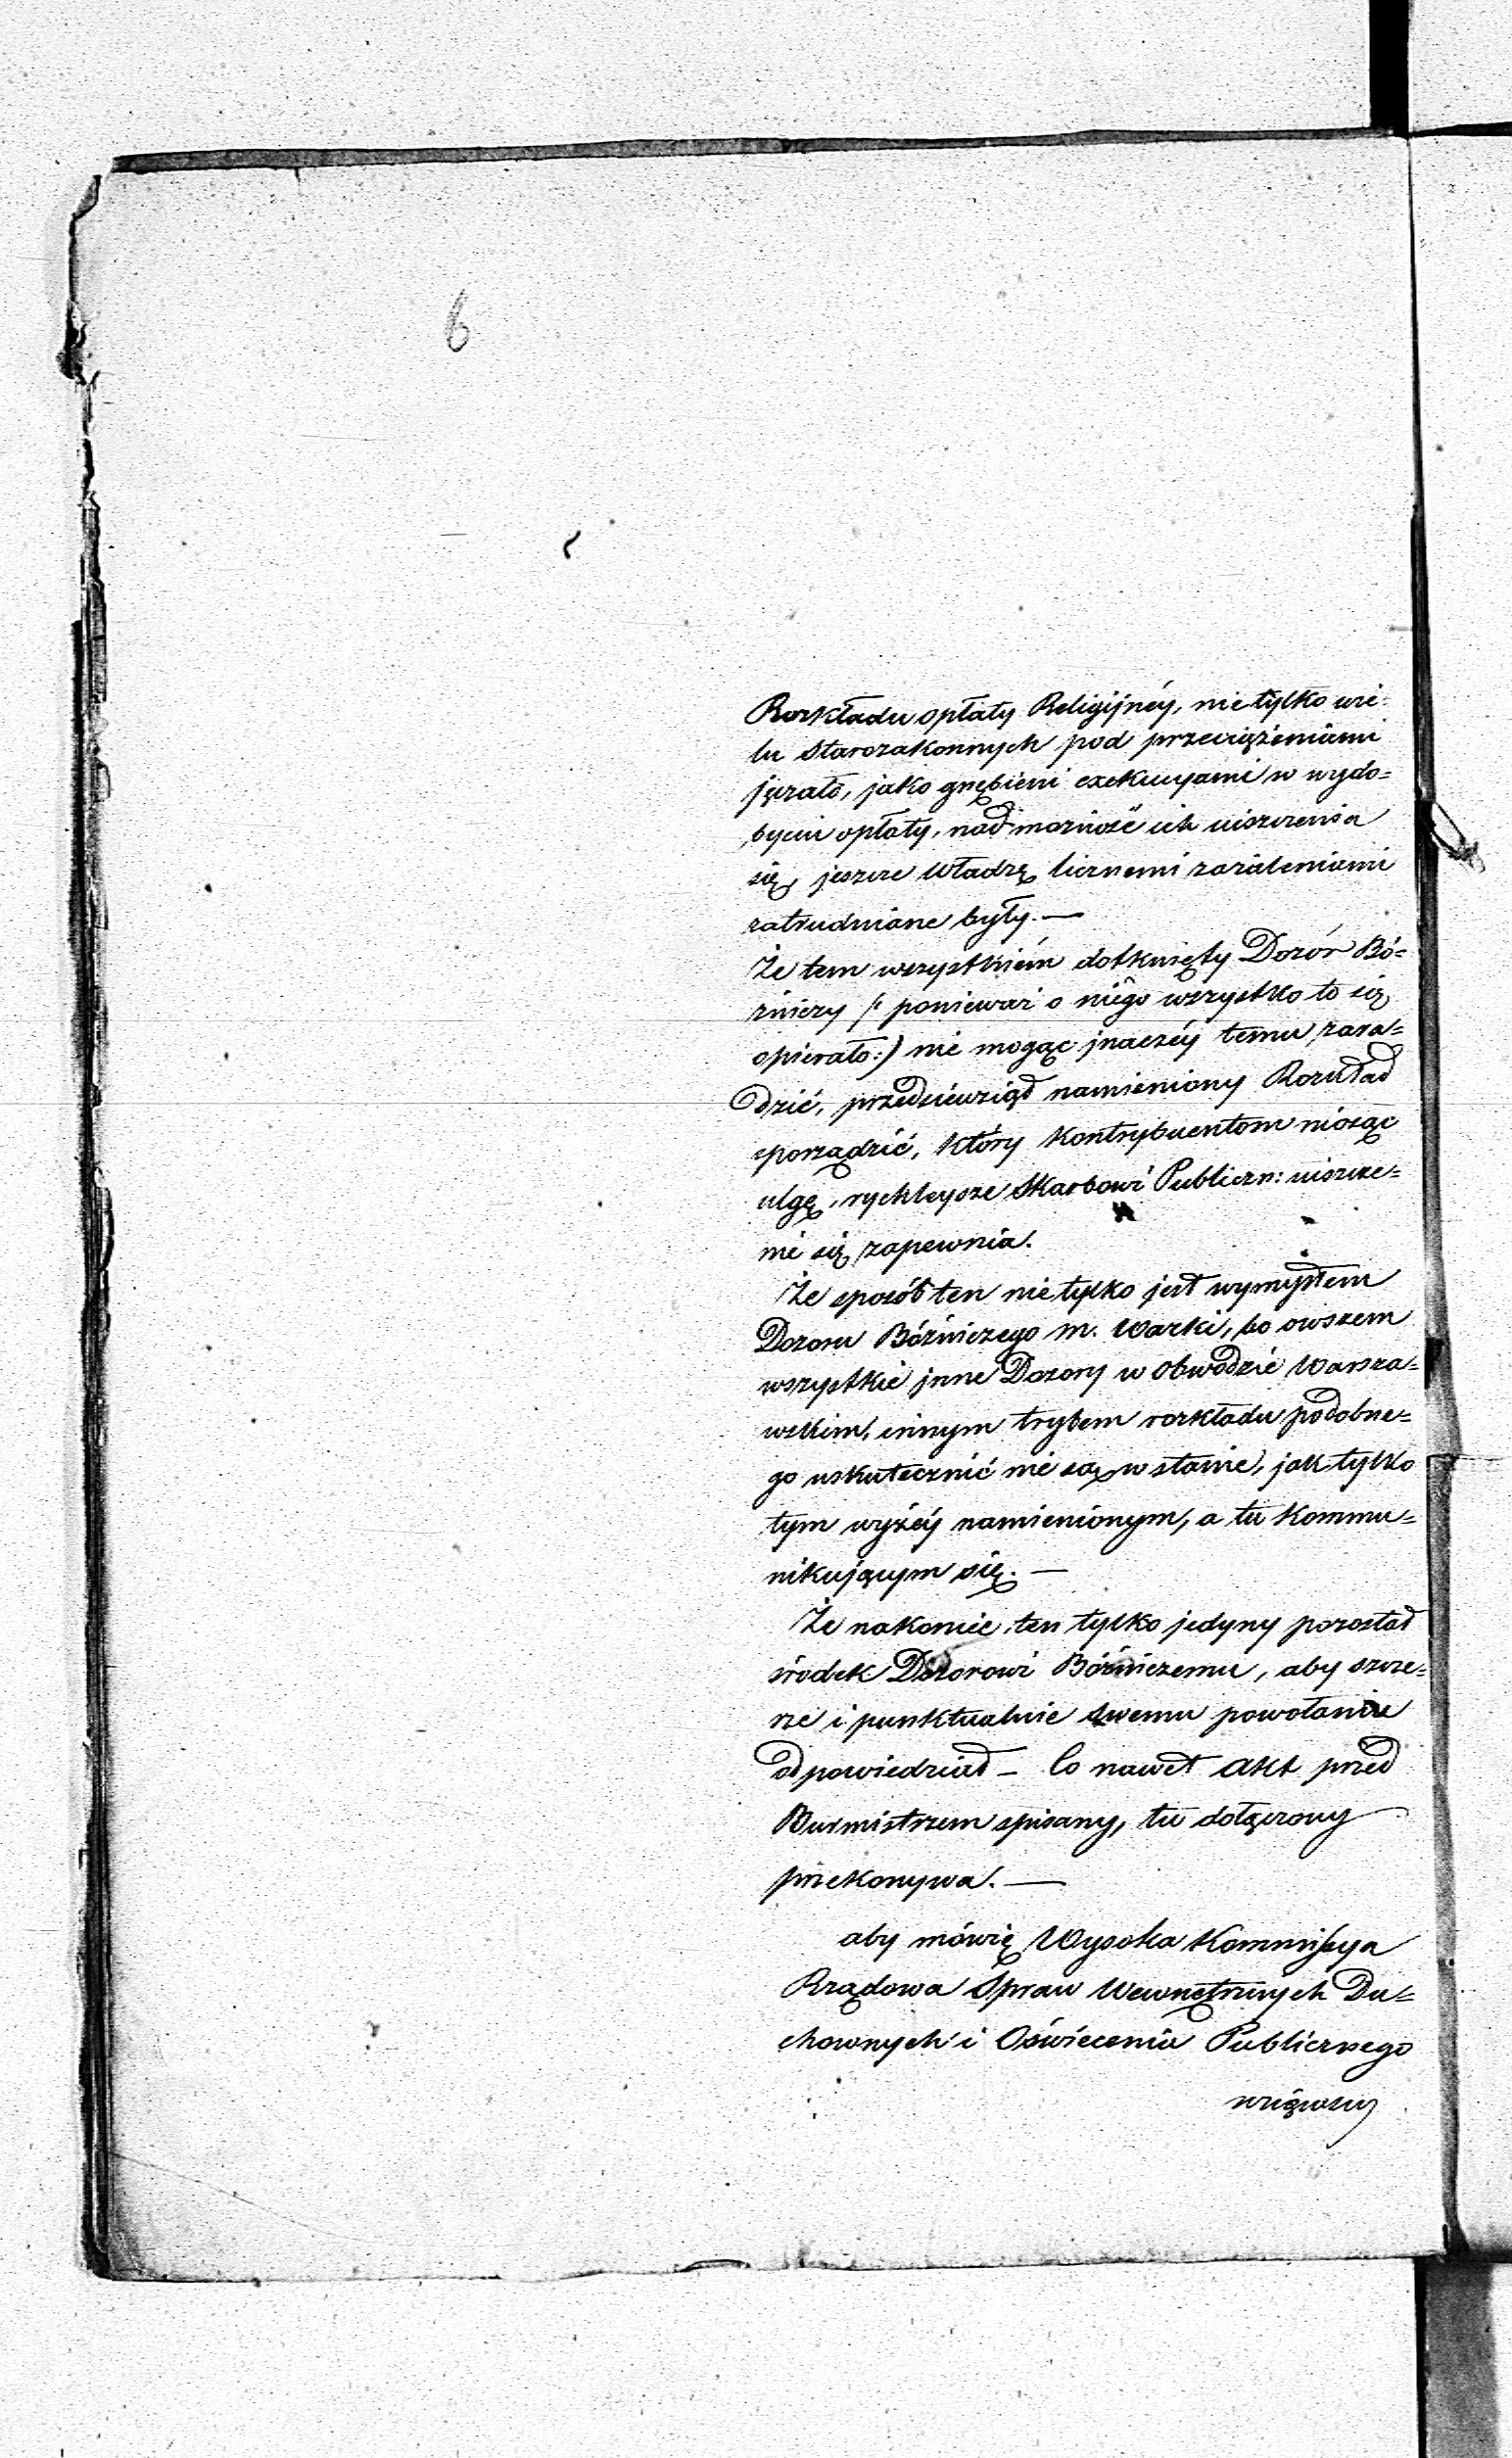 6
Rozkładu opłaty Religijnéy, nie tylko wie-
lu Starozakonnych pod przeciążeniami
jęzało, jako gnębieni exekucyami w wydo=
byciu opłaty, nad możność ich uiszczenia
się, jeszcze Władzę licznemi zażaleniami
zatrudniane były. —
Że tem wszystkiém dotknięty Dozór Bó=
żniczy /: ponieważ o niego wszystko to się
opierało :/ nie mogąc jnaczéy temu zara=
dzić, przedsięwziął namieniony Rozkład
sporządzić, który Kontrybuentom niosąc
ulgę, rychleysze Skarbowi Publiczn: uiszcze=
nie się zapewnia.
Że sposób ten nie tylko jest wymysłem
Dozoru Bóźniczego m. Warki, bo owszem
wszystkie jnne Dozory w Obwodzie Warsza=
wskim, innym trybem rozkładu podobne=
go uskutecznić nie są w stanie, jak tylko
tym wyżéy namienionym, a tu Kommu=
nikującym się. —
Że nakoniec, ten tylko jedyny pozostał
środek Dozorowi Bóźniczemu, aby szcze=
rze i punktualnie swemu powołaniu
odpowiedział — Co nawet Akt przed
Burmistrzem spisany, tu dołączony
przekonywa. —
aby mówię Wysoka Kommissya
Rządowa Spraw Wewnętrznych Du=
chownych i Oświecenia Publicznego
wziąwszy